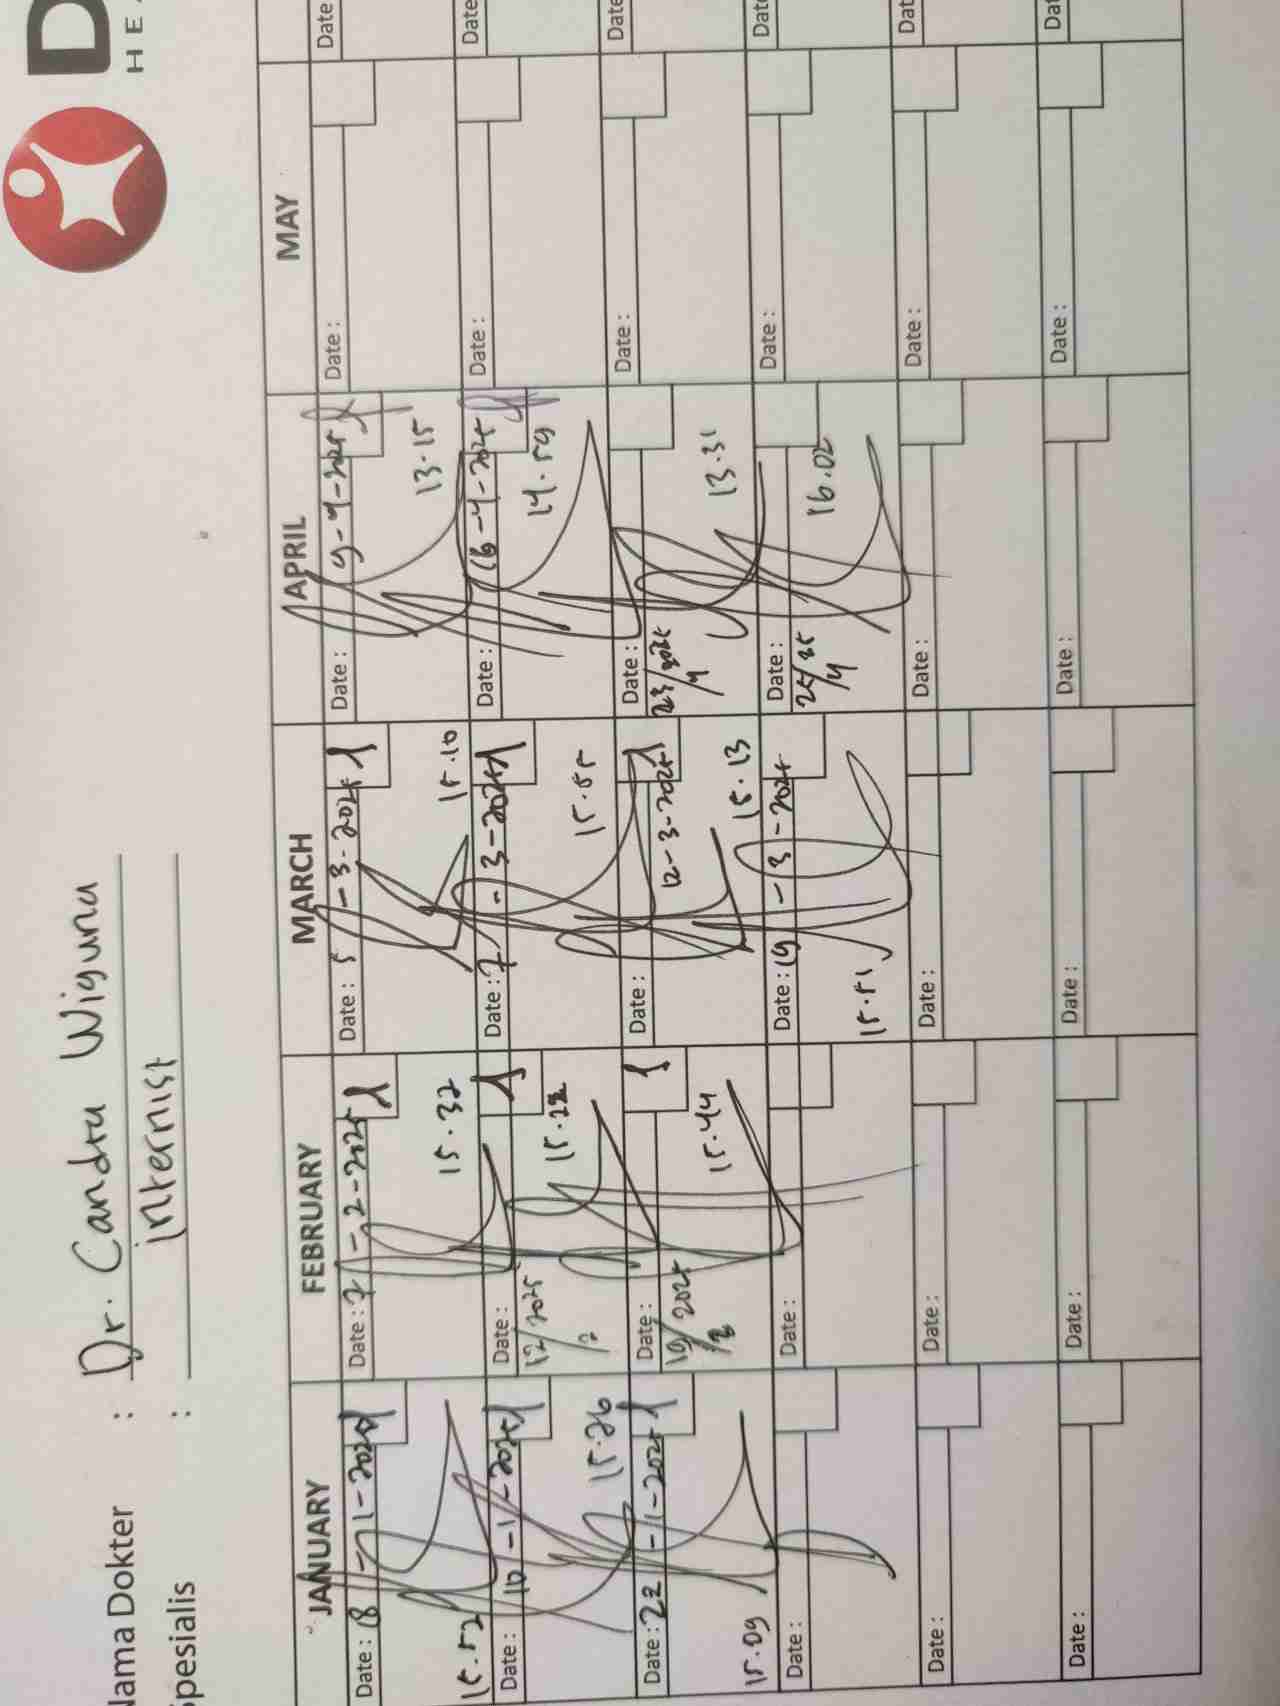 D
HE
Nama Dokter : Dr. Candra Wiguna
Spesialis : internist
JANUARY FEBRUARY MARCH APRIL MAY
Date : 8-1-2025 Date : 7-2-2025 Date : 5-3-2025 Date : 9-4-2025 Date : Date
15.52 15.32 15.10 13.15
Date : 10-1-2025 Date : 12/2 2025 Date : 7-3-2025 Date : 16-4-2025 Date : Date
15.26 15.22 15.55 14.59
Date : 22-1-2025 Date : 19/2 2025 Date : 12-3-2025 Date : 23/4 2025 Date : Date
15.09 15.44 15.13 13.31
Date : Date : Date : 19-3-2025 Date : 25/4 25 Date : Date
15.51 16.02
Date : Date : Date : Date : Date : Dat
Date : Date : Date : Date : Date : Dat